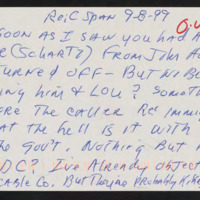 Re: C SPAN 9-8-99
SOON AS I SAW YOU HAD A
(SCHARTZ) FROM JOHN
TURNED OFF - BUT NO
HIM & LOU? SOMET
ARE THE CALLER Re:
AT THE HELL IS IT WITH
THE GOV'T. NOTHING BUT
DC? I've Already object
CABLE Co. But They're probably